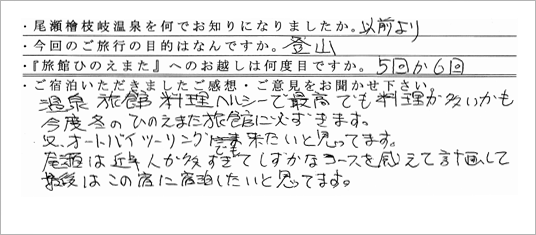 ・尾瀬檜枝岐温泉を何でお知りになりましたか。以前より
・今回のご旅行の目的はなんですか。登山
・『旅館ひのえまた』へのお越しは何度目ですか。5回か6回
・ご宿泊いただきましたご感想・ご意見をお聞かせ下さい。
温泉 旅館 料理 ヘルシーで最高 でも料理が多いかも
今度冬のひのえまた旅館に必ずきます。
又、オートバイツーリングでも来たいと思ってます。
尾瀬は近年人が多すぎてしずかなコースを考えて計画して
最後はこの宿に宿泊したいと思ってます。